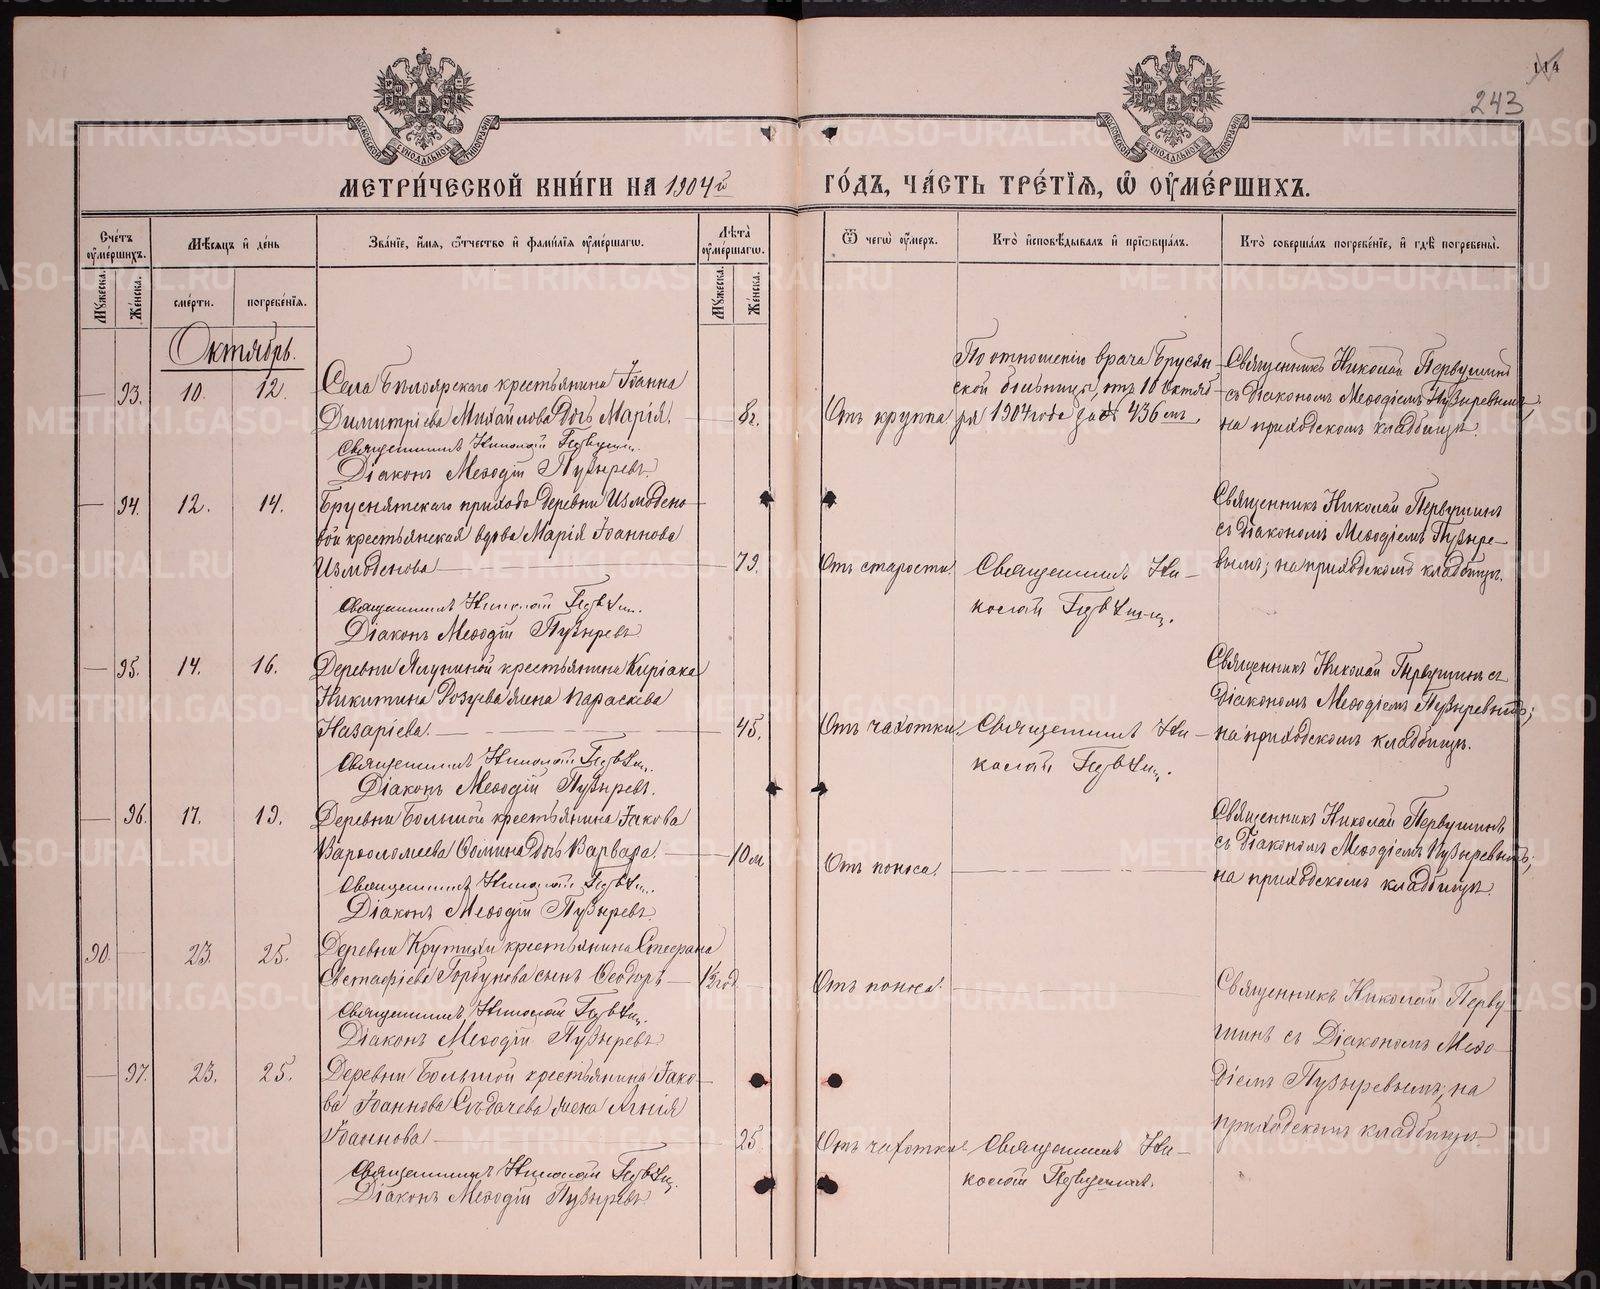 114
243
МЕТРИ́ЧЕСКОЙ КНИ́ГИ НА 1904й
ГО́ДЪ, ЧА́СТЬ ТРЕ́ТІѦ, Ѿ ОУ҆МЕ́РШИХЪ.
Сче́тъ оу҆ме́ршихъ.
Мѣ́сѧцъ и҆ де́нь
Зва́нїе, и҆́мѧ, ѻ҆́тчество и҆ фами́лїѧ оу҆ме́ршагѡ.
Лѣ́та оу҆ме́ршагѡ.
Ѿ чегѡ̀ оу҆́меръ.
Кто̀ и҆сповѣ́дывалъ и҆ прїѡбща́лъ.
Кто̀ соверша́лъ погребе́нїе, и҆ гдѣ̀ погребены̀.
Мꙋ́жеска.
Же́нска.
сме́рти.
погребе́нїѧ.
Мꙋ́жеска.
Же́нска.
Октябрь.
93. 10. 12. Села Бѣлоярскаго крестьянина Іоанна
Димитріева Михайлова дочь Марія. 8 г.
Священникъ Николай Первушинъ
Діаконъ Меѳодій Пузыревъ
Отъ крупа
По отношенію врача Брусян-
ской больницы, отъ 10 октяб-
ря 1904 года за № 436 мъ
Священникъ Николай Первушинъ
съ Діакономъ Меѳодіемъ Пузыревымъ,
на приходскомъ кладбищѣ.
94. 12. 14. Бруснятскаго прихода деревни Измодено-
вой крестьянская вдова Марія Іоаннова
Измоденова 79.
Священникъ Николай Первушинъ
Діаконъ Меѳодій Пузыревъ
Отъ старости.
Священникъ Ни-
колай Первушинъ.
Священникъ Николай Первушинъ
съ Діакономъ Меѳодіемъ Пузыре-
вымъ; на приходскомъ кладбищѣ.
95. 14. 16. Деревни Ялуниной крестьянина Киріака
Никитина жена Параскева
Назаріева. 45.
Священникъ Николай Первушинъ
Діаконъ Меѳодій Пузыревъ.
Отъ чахотки.
Священникъ Ни-
колай Первушинъ.
Священникъ Николай Первушинъ съ
Діакономъ Меѳодіемъ Пузыревымъ;
на приходскомъ кладбищѣ.
96. 17. 19. Деревни Большой крестьянина Іакова
Варѳоломеева Ѳомина дочь Варвара. 10 м.
Священникъ Николай Первушинъ
Діаконъ Меѳодій Пузыревъ.
Отъ поноса.
Священникъ Николай Первушинъ
съ Діакономъ Меѳодіемъ Пузыревымъ;
на приходскомъ кладбищѣ.
90. 23. 25. Деревни Крутихи крестьянина Стефана
Евстафіева Горбунова сынъ Ѳеодоръ 1½ год
Священникъ Николай Первушинъ
Діаконъ Меѳодій Пузыревъ
Отъ поноса.
Священникъ Николай Перву
шинъ съ Діакономъ Меѳо-
діемъ Пузыревымъ; на
приходскомъ кладбищѣ
97. 23. 25. Деревни Большой крестьянина Іако-
ва Іоаннова жена Агнія
Іоаннова 25.
Священникъ Николай Первушинъ
Діаконъ Меѳодій Пузыревъ
Отъ чахотки
Священникъ Ни-
колай Первушинъ.
METRIKI.GASO-URAL.RU